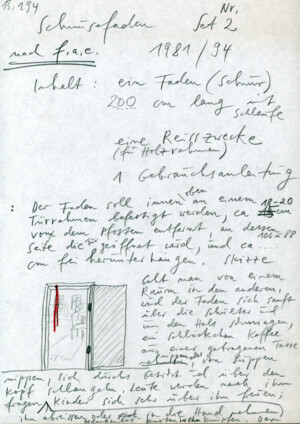 15.1.94
Schmusefaden Nr.
Set 2
nach f.a.e. 1981/94
Inhalt: ein Faden (Schnur)
200 cm lang mit
Schleife
eine Reisszwecke
(für Holzrahmen)
1 Gebrauchsanleitung
: Der Faden soll innen oben an einem
Türrahmen befestigt werden, ca 18-20 cm
vom dem Pfosten entfernt, an dessen
Seite die geöffnet wird, und ca 106-88
cm frei herunterhängen. Skizze
Geht man von einem
Raum in den anderen,
wird der Faden sich sanft
über die Schulter und
um den Hals schmiegen,
ein Schlückchen Kaffee
aus einer getragenen Tasse
nippen, sich durchs Gesicht und über den
Kopf schlängeln. Leute werden nach ihm
fragen, Kinder sich sehr über ihn freuen;
ihn abreissen oder in die Hand nehmen